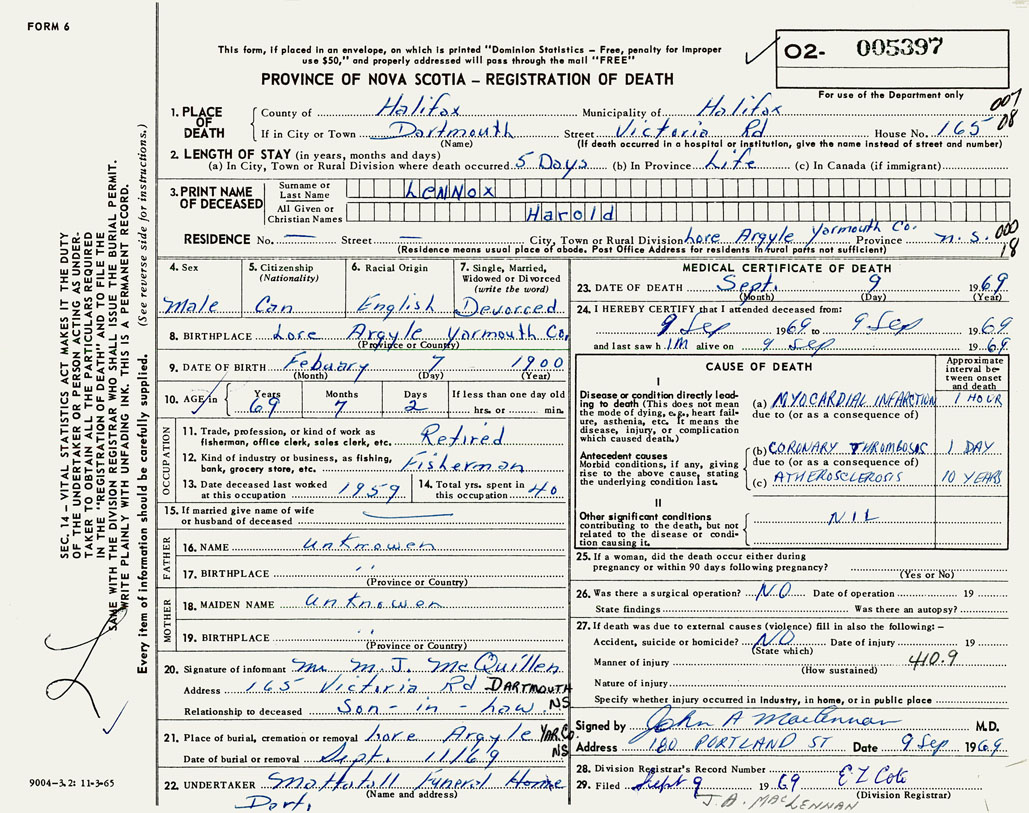 FORM 6
This form, if placed in an envelope, on which is printed "Dominion Statistics – Free, penalty for improper
use $50," and properly addressed will pass through the mail "FREE"
PROVINCE OF NOVA SCOTIA – REGISTRATION OF DEATH
02- 005397
For use of the Department only
007
08
1. PLACE OF DEATH
County of Halifax Municipality of Halifax
If in City or Town Dartmouth Street Victoria Rd House No. 165
(Name) (If death occurred in a hospital or institution, give the name instead of street and number)
2. LENGTH OF STAY (in years, months and days)
(a) In City, Town or Rural Division where death occurred 5 Days (b) In Province Life (c) In Canada (if immigrant)
3. PRINT NAME OF DECEASED
Surname or Last Name LENNOX
All Given or Christian Names Harold
RESIDENCE No. — Street — City, Town or Rural Division Lore Argyle Yarmouth Co. Province N.S. 000
18
(Residence means usual place of abode. Post Office Address for residents in rural parts not sufficient)
4. Sex
Male
5. Citizenship (Nationality)
Can
6. Racial Origin
English
7. Single, Married, Widowed or Divorced (write the word)
Devorced
8. BIRTHPLACE Lore Argyle Yarmouth Co.
(Province or County)
9. DATE OF BIRTH Febuary 7 1900
(Month) (Day) (Year)
10. AGE in Years 69 Months 7 Days 2 If less than one day old hrs. or min.
OCCUPATION
11. Trade, profession, or kind of work as
fisherman, office clerk, sales clerk, etc. Retired
12. Kind of industry or business, as fishing,
bank, grocery store, etc. Fisherman
13. Date deceased last worked at this occupation 1959
14. Total yrs. spent in this occupation 40
15. If married give name of wife
or husband of deceased —
FATHER
16. NAME Unknowen
17. BIRTHPLACE ''
(Province or Country)
MOTHER
18. MAIDEN NAME Unknowen
19. BIRTHPLACE ''
(Province or Country)
20. Signature of informant Mr. M. J. McQuillen
Address 165 Victoria Rd DARTMOUTH
Relationship to deceased Son-in-Law NS
21. Place of burial, cremation or removal Lore Argyle YAR Co.
Date of burial or removal Sept. 11/69 NS
22. UNDERTAKER Mattatall Funeral Home
(Name and address)
Dart.
MEDICAL CERTIFICATE OF DEATH
23. DATE OF DEATH Sept. 9 1969
(Month) (Day) (Year)
24. I HEREBY CERTIFY that I attended deceased from:
9 Sep 1969 to 9 Sep 1969
and last saw h IM alive on 9 Sep 1969
CAUSE OF DEATH
Approximate interval between onset and death
I
Disease or condition directly leading to death (This does not mean the mode of dying, e.g., heart failure, asthenia, etc. It means the disease, injury, or complication which caused death.)
(a) MYOCARDIAL INFARCTION 1 HOUR
due to (or as a consequence of)
Antecedent causes
Morbid conditions, if any, giving rise to the above cause, stating the underlying condition last.
(b) CORONARY THROMBOSIS 1 DAY
due to (or as a consequence of)
(c) ATHEROSCLEROSIS 10 YEARS
II
Other significant conditions
contributing to the death, but not related to the disease or condition causing it.
NIL
25. If a woman, did the death occur either during
pregnancy or within 90 days following pregnancy?
(Yes or No)
26. Was there a surgical operation? NO Date of operation 19
State findings Was there an autopsy?
27. If death was due to external causes (violence) fill in also the following:–
Accident, suicide or homicide? NO Date of injury 19
(State which)
Manner of injury 410.9
(How sustained)
Nature of injury
Specify whether injury occurred in industry, in home, or in public place
Signed by John A MacLennan M.D.
Address 180 PORTLAND ST Date 9 Sep 1969
28. Division Registrar's Record Number
29. Filed Sept 9 1969 E Z Cote
(Division Registrar)
J. A. MACLENNAN
SEC. 14 – VITAL STATISTICS ACT MAKES IT THE DUTY
OF THE UNDERTAKER OR PERSON ACTING AS UNDER-
TAKER TO OBTAIN ALL THE PARTICULARS REQUIRED
IN THE "REGISTRATION OF DEATH" AND TO FILE THE
SAME WITH THE DIVISION REGISTRAR WHO SHALL ISSUE THE BURIAL PERMIT.
WRITE PLAINLY WITH UNFADING INK. THIS IS A PERMANENT RECORD.
Every item of information should be carefully supplied. (See reverse side for instructions.)
9004-3.2: 11-3-65